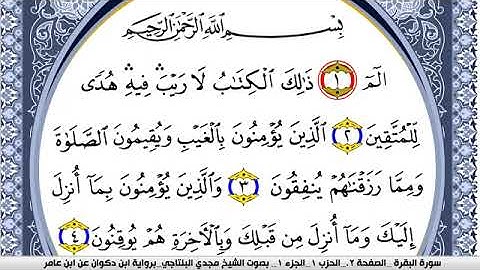 بِسْمِ اللَّهِ الرَّحْمَٰنِ الرَّحِيمِ
الٓمٓ ١ ذَٰلِكَ الْكِتَابُ لَا رَيْبَ ۛ فِيهِ ۛ هُدًى
لِّلْمُتَّقِينَ ٢ الَّذِينَ يُؤْمِنُونَ بِالْغَيْبِ وَيُقِيمُونَ الصَّلَوٰةَ
وَمِمَّا رَزَقْنَٰهُمْ يُنفِقُونَ ٣ وَالَّذِينَ يُؤْمِنُونَ بِمَا أُنزِلَ
إِلَيْكَ وَمَا أُنزِلَ مِن قَبْلِكَ وَبِالْأَخِرَةِ هُمْ يُوقِنُونَ ٤
سورة البقرة _الصفحة ٢_ الحزب ١_ الجزء ١_ بصوت الشيخ مجدي البلتاجي_برواية ابن دكوان عن ابن عامر